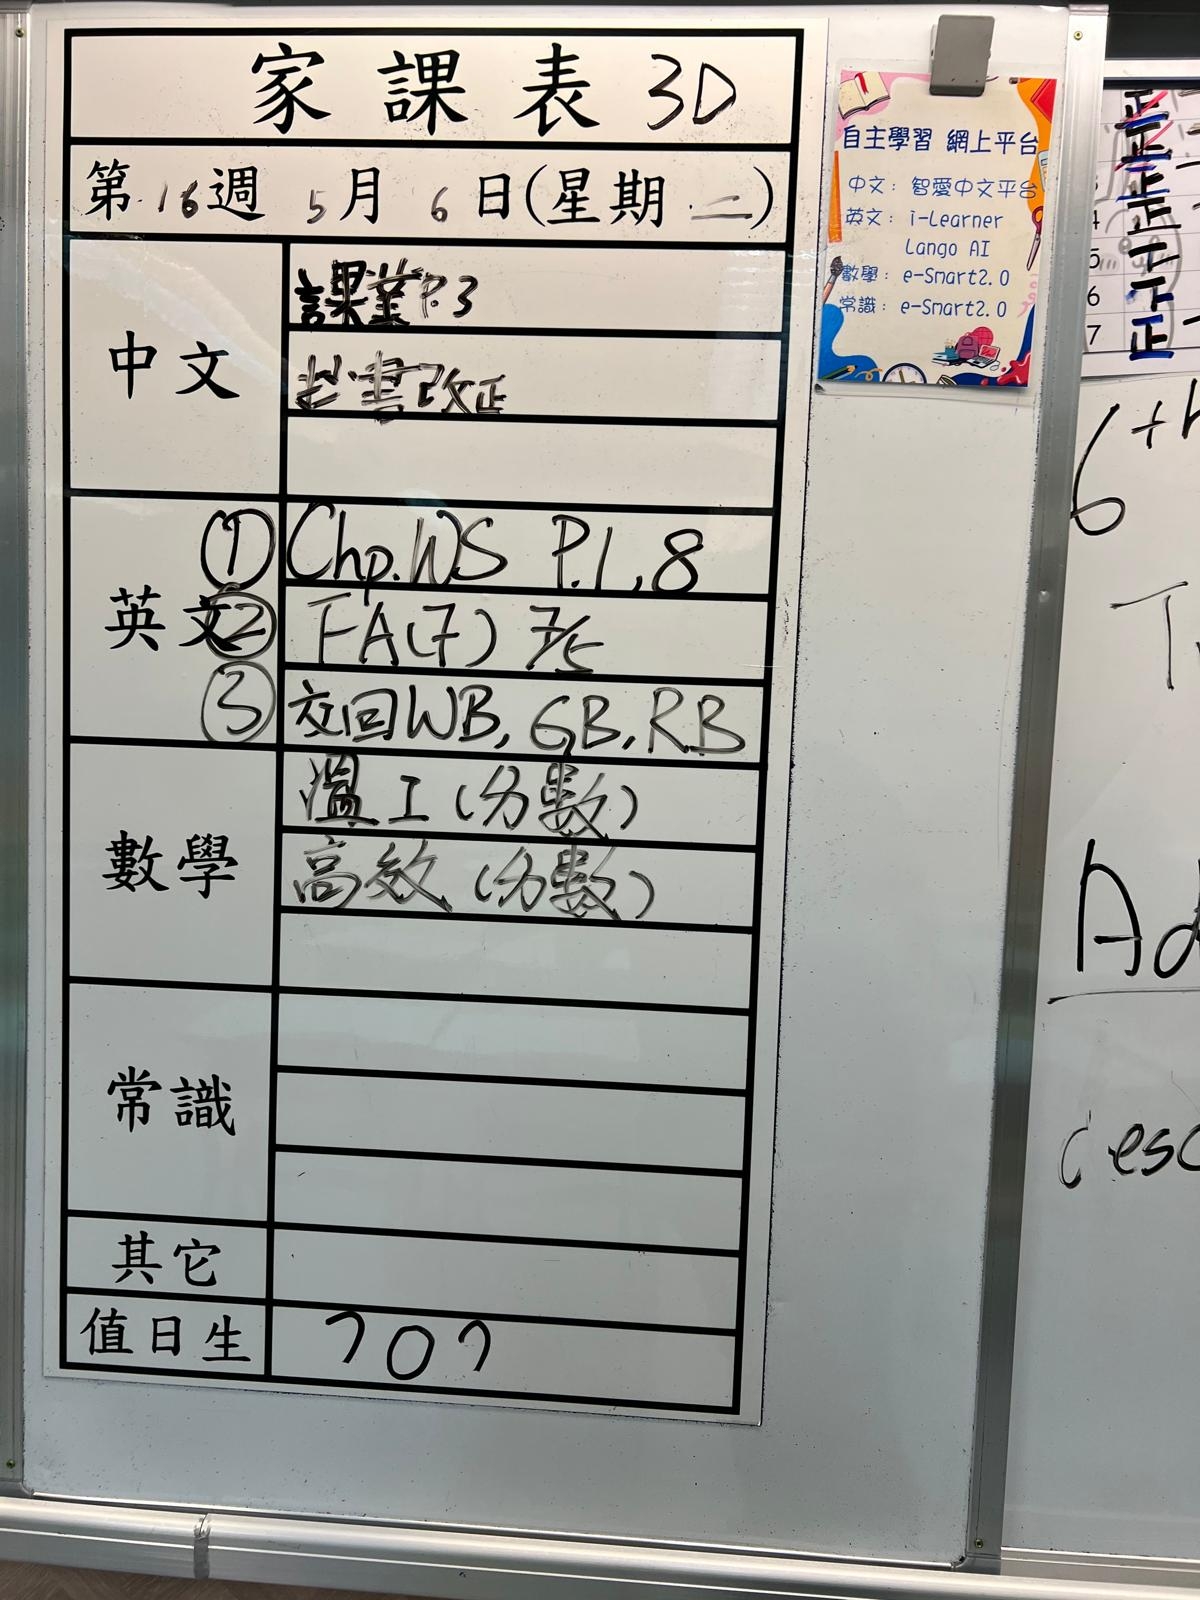 家課表 3D
第16週 5月6日(星期二)
中文
課業P.3
抄書改正
英文
① Chp.WS P.1,8
② FA(7) 7/5
③ 交回WB, GB, RB
數學
溫工(分數)
高效(分數)
常識
其它
值日生
自主學習 網上平台
中文：智愛中文平台
英文：i-Learner
Lango AI
數學：e-Smart2.0
常識：e-Smart2.0
正
正
正
4 正
5
6
7 正
6th
Ad
desc